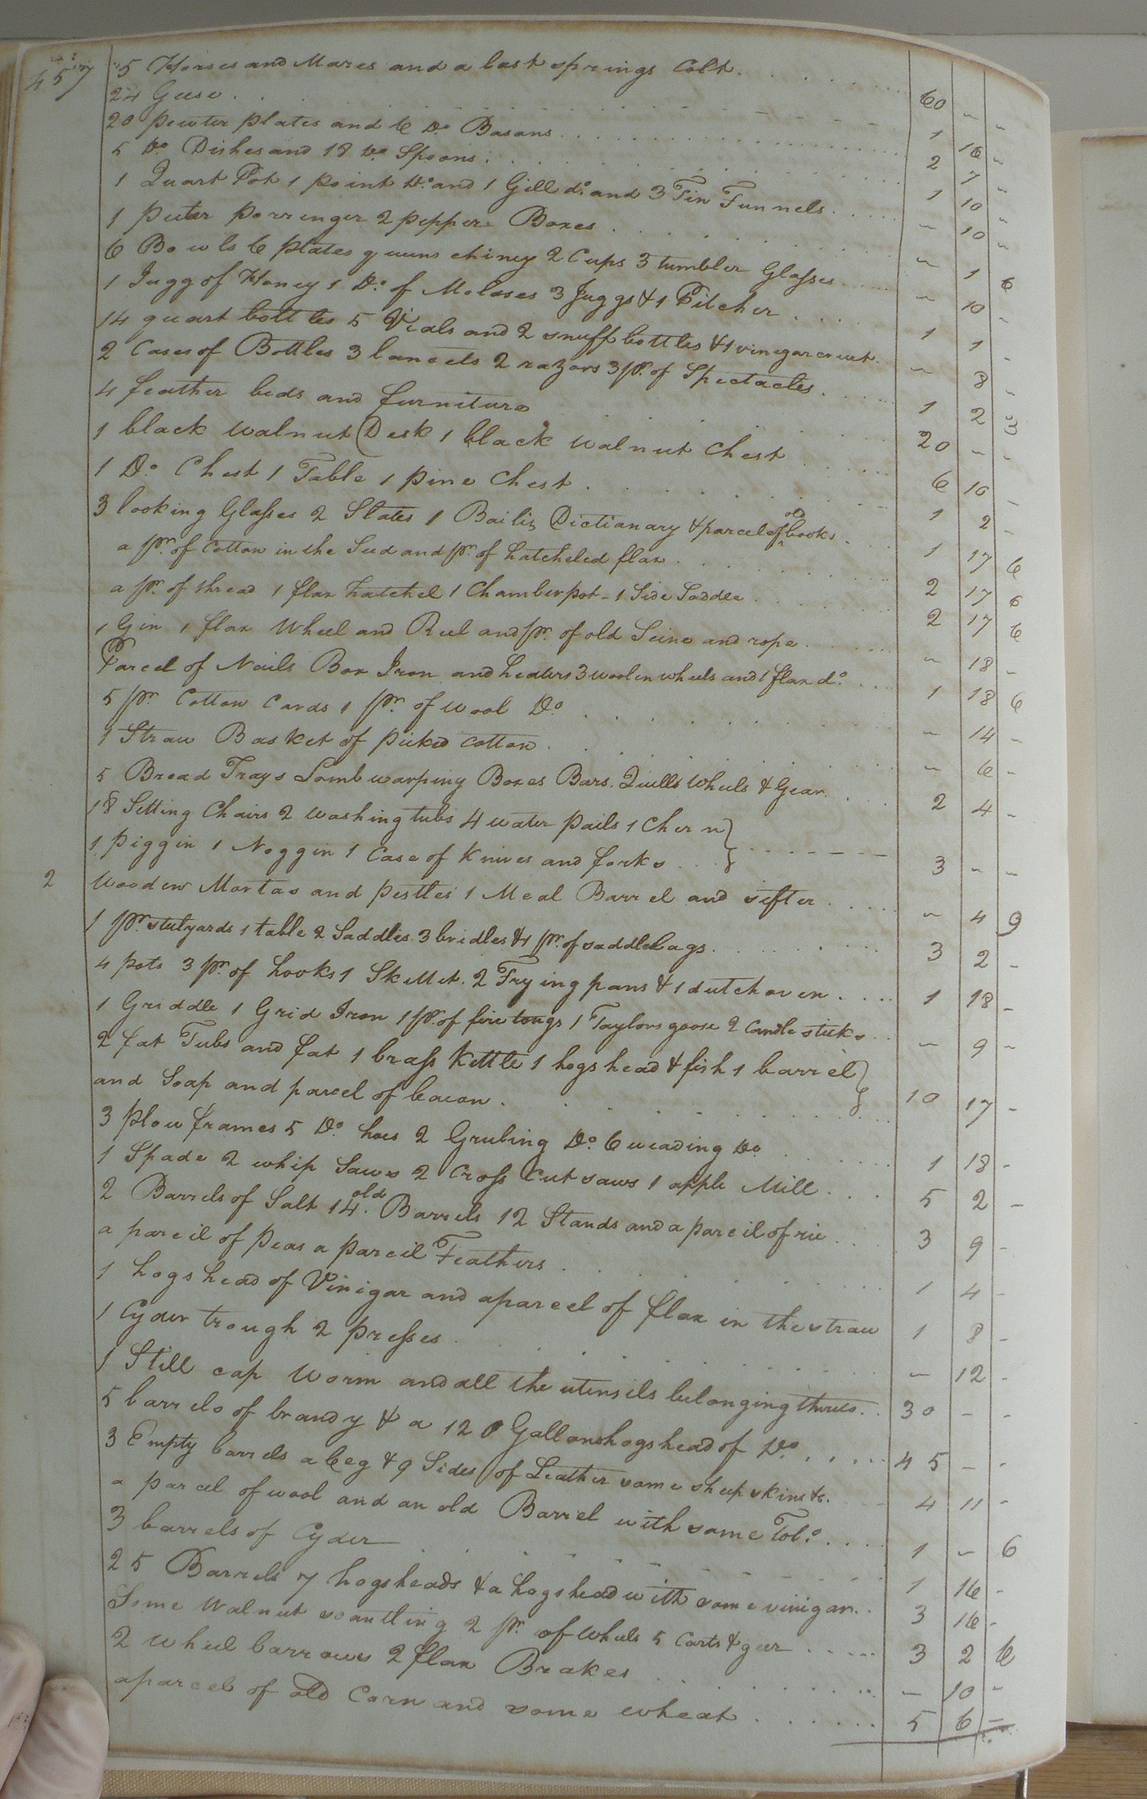 457
5 Horses and Mares and a last springs Colt. 60 - -
24 Geese 1 16 -
20 pewter plates and 6 Do Basons 2 7 -
5 Do Dishes and 18 Do Spoons 1 10 -
1 Quart Pot 1 point Do and 1 Gill do and 3 Tin Funnels - 10 -
1 Puter porringer 2 pepper Boxes - 1 6
6 Bowls 6 plates queens chiney 2 Cups 3 tumbler Glasses - 10 -
1 Jugg of Honey 1 Do of Molases 3 Juggs & 1 Pitcher 1 1 -
14 quart bottles 5 Vials and 2 snuff bottles & 1 vinegar cruet - 8 -
2 Cases of Bottles 3 lancets 2 razors 3 pr of Spectacles 1 2 3
4 feather beds and furniture 20 - -
1 black walnut Desk 1 black walnut Chest 6 10 -
1 Do Chest 1 Table 1 pine Chest 1 2 -
3 looking Glasses 2 Slates 1 Bailis Dictionary & parcel of old books 1 17 6
a pr. of Cotton in the Seed and pr. of hatcheled flax 2 17 6
a pr. of thread 1 flax hatchel 1 Chamber pot - 1 Side Saddle 2 17 6
1 Gin 1 flax Wheel and Reel and pr. of old Seine and rope - 18 -
Parcel of Nails Box Iron and heaters 3 woolen wheels and 1 flax do 1 18 6
5 pr Cotton Cards 1 pr of wool Do - 14 -
1 Straw Basket of picked cotton - 6 -
5 Bread Trays Loomb warping Boxes Bars. Quills wheels & Gear 2 4 -
18 Setting Chairs 2 washing tubs 4 water pails 1 Chern }
1 piggin 1 Noggin 1 Case of Knives and forks } 3 - -
2 Wooden Mortas and pestles 1 Meal Barrel and sifter - 4 9
1 pr stutyards 1 table 2 Saddles 3 bridles & 1 pr of saddlebags 3 2 -
4 pots 3 pr of hooks 1 Skellet. 2 Frying pans & 1 dutch oven 1 18 -
1 Griddle 1 Grid Iron 1 pr. of fire tongs 1 Taylors goose 2 Candle sticks - 9 -
2 fat Tubs and fat 1 brass kettle 1 hogshead & fish 1 barriel }
and Soap and parcel of bacon. } 10 17 -
3 plow frames 5 Do hoes 2 Grubing Do 6 weading Do 1 18 -
1 Spade 2 whip Saws 2 Cross Cut saws 1 apple Mill 5 2 -
2 Barrels of Salt 14 old Barrels 12 Stands and a parceil of rie 3 9 -
a parceil of peas a parceil Feathers 1 4 -
1 hogshead of Vinigar and a parceel of flax in the straw 1 8 -
1 Cyder trough 2 presses - 12 -
1 Still cap worm and all the utensils belonging thereto 30 - -
5 barrels of brandy & a 120 Gallons hogshead of Do 45 - -
3 Empty barrels a ceg & 9 Sides of Leather some sheep skins &c. 4 11 -
a parcel of wool and an old Barrel with some Tobo 1 - 6
3 barrels of Cyder 1 16 -
25 Barrels 7 hogsheads & a hogshead with some vinigar 3 16 -
Some walnut scantling 2 pr of wheels 5 Carts & geer 3 2 6
2 wheel barrows 2 flax Brakes - 10 -
a parceel of old Corn and some wheat 5 6 -